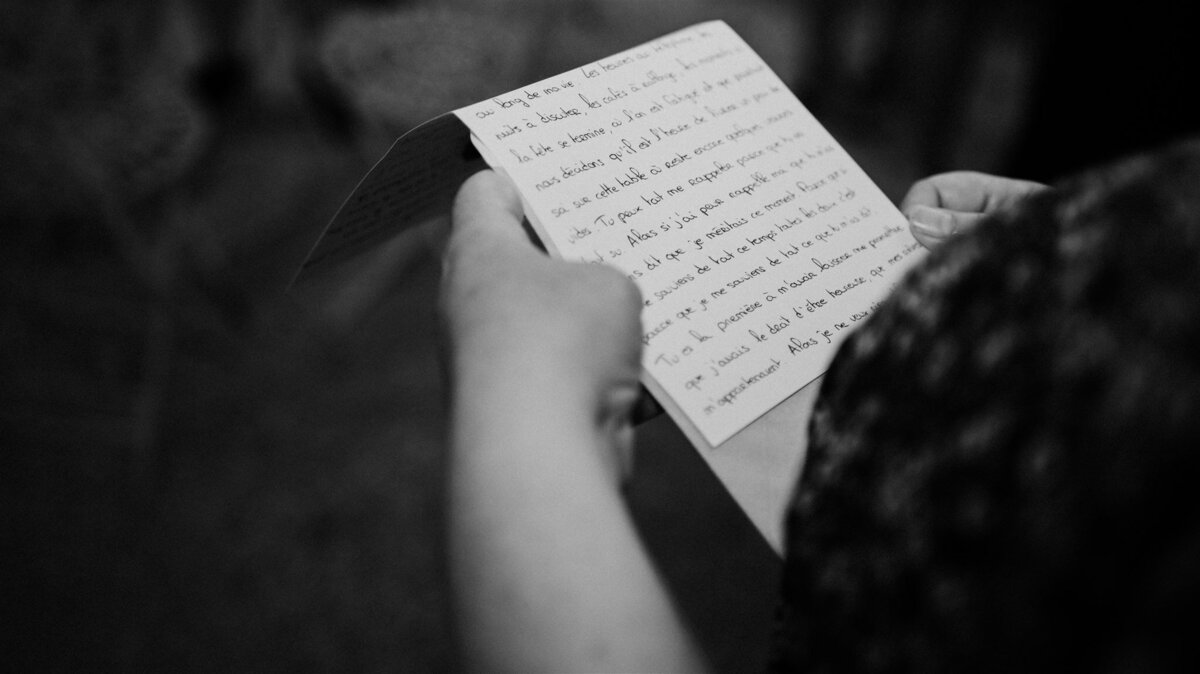 au long de ma vie. Les heures au téléphone, les
nuits à discuter, les cafés à rallonge, les moments où
la fête se termine, où l'on est fatigué et que pourtant
nous décidons qu'il est l'heure de
sur cette table à reste encore quelques
vides. Tu peux tout me rappeler parce que tu as
tout su. Alors si j'ai peur rappelle moi que tu
dit que je méritais ce moment. Parce que
me souviens de tout ce temps toutes les deux c'est
parce que je me souviens de tout ce que tu m'as
Tu es la première à m'avoir laisser me permettre
que j'avais le droit d'être heureuse, que mes
m'appartenaient. Alors je ne